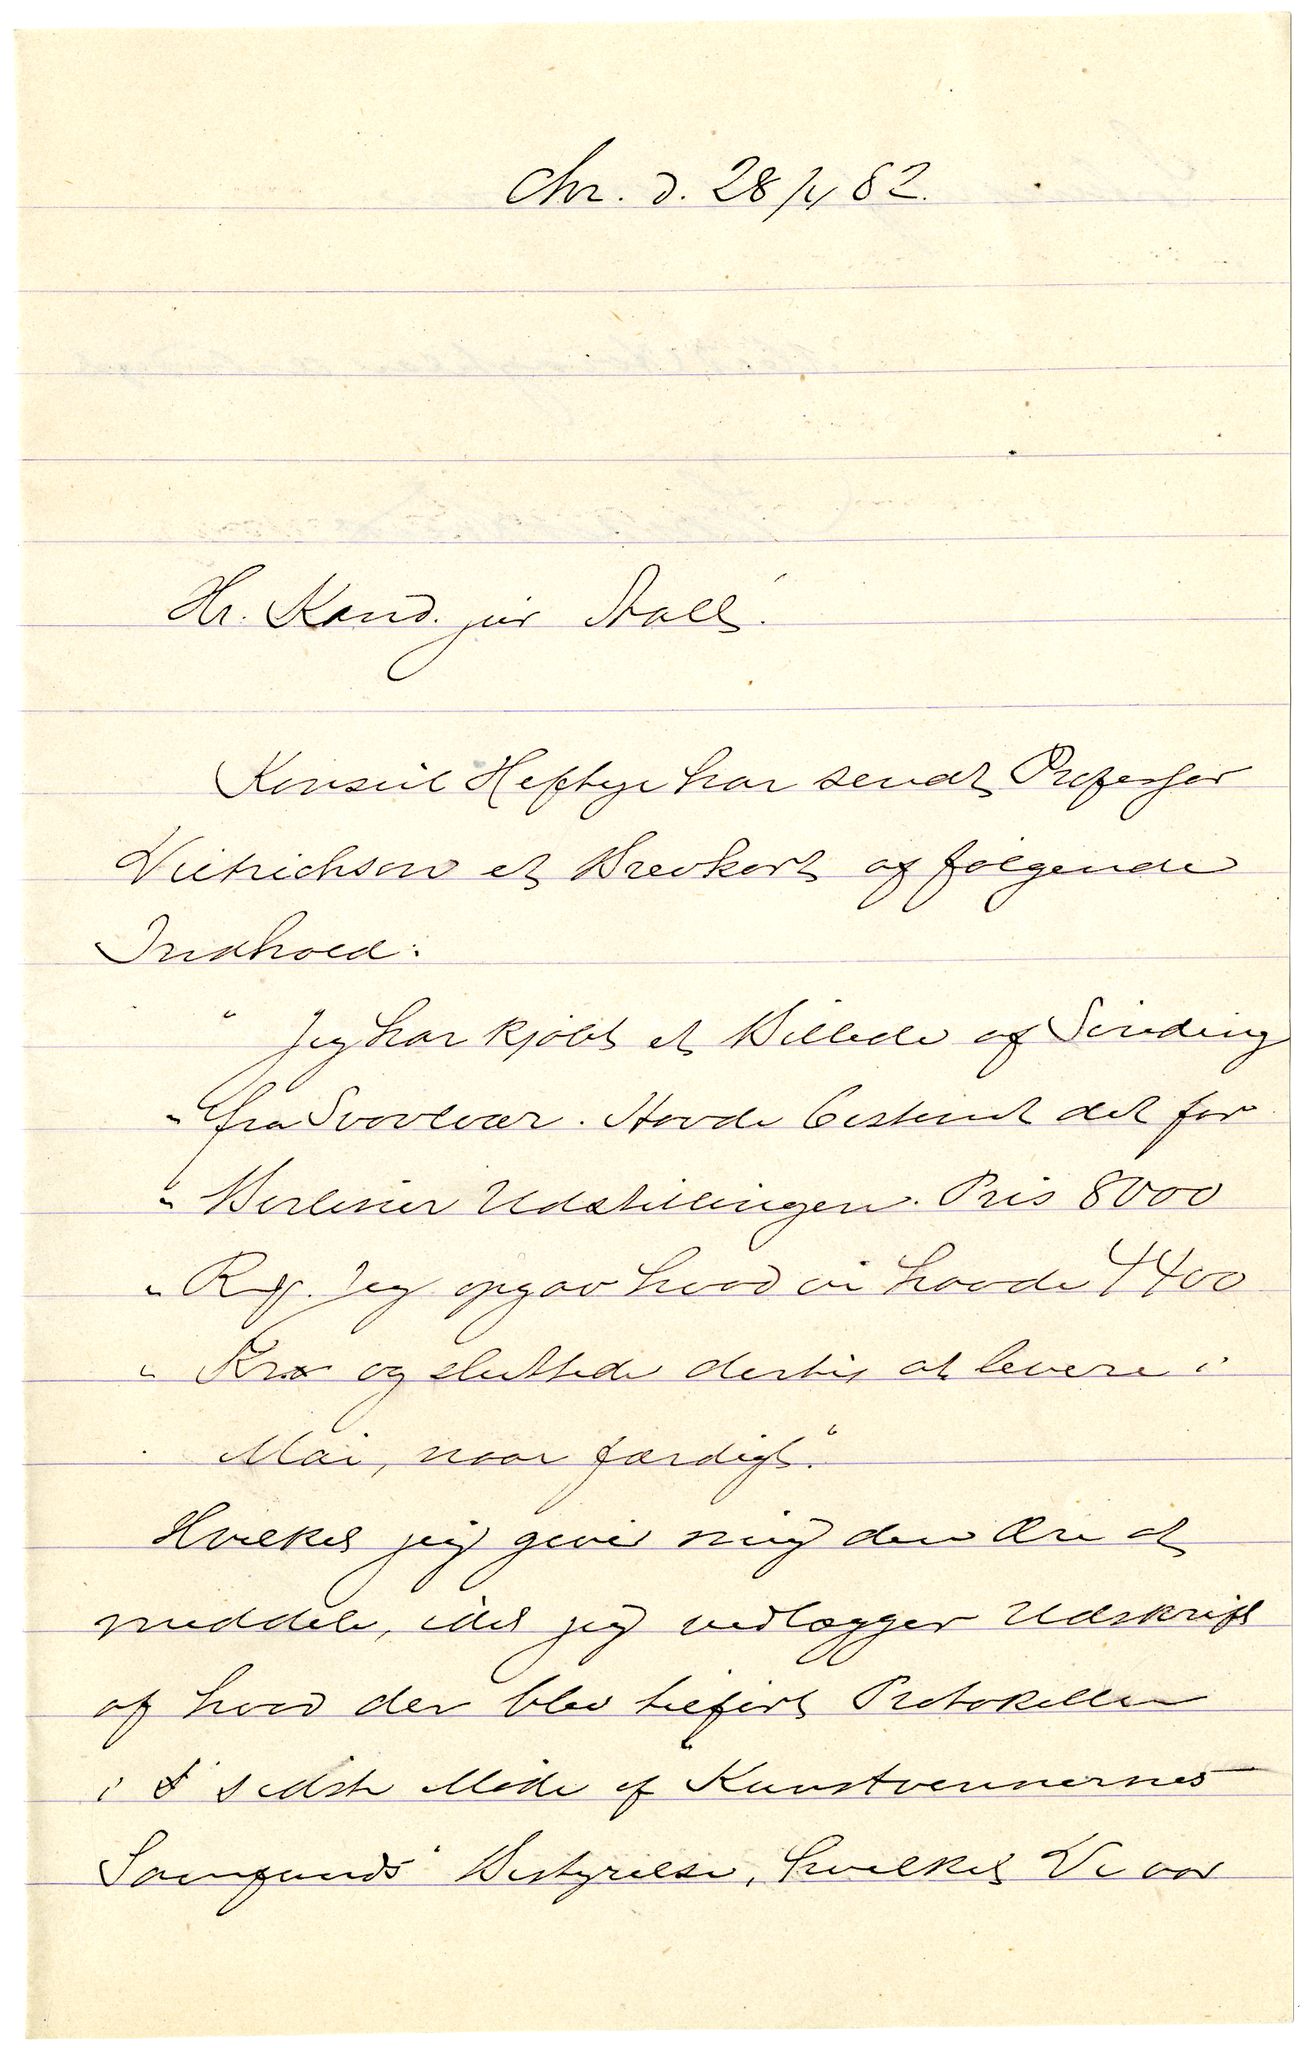 Chr. d. 28/4 82.
Hr. Kand. jur Aall.
Konsul Heftye har sendt Professor
Dietrichson et Brevkort af følgende
Indhold:
"Jeg har kjøbt et Billede af Sinding
"fra Svolvær. Havde bestemt det for
"Berliner Udstillingen. Pris 8000
" Jeg opgav hvad vi havde 4400
"Kr og sluttede dertil at levere i
Mai, naar færdigt."
Hvilket jeg giver mig den Ære at
meddele, idet jeg vedlægger Udskrift
af hvad der blev tilført Protokollen
i sidste Møde af "Kunstvennernes
Samfunds" Bestyrelse, hvilket De var